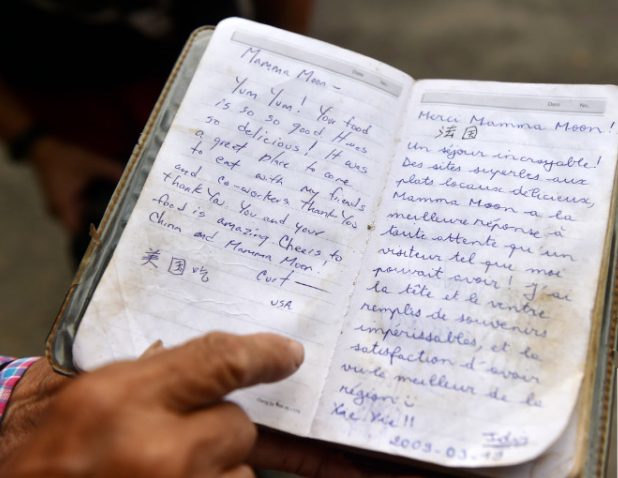 Date No.
Mamma Moon -
Yum Yum! You food
is so so good It was
so delicious! It was
a great place to come
to eat with my friends
and co-workers Thank You
thank You. You and your
food is amazing Cheers to
China and Mamma Moon!
Curt
美国吃
USA
Date No.
Merci Mamma Moon!
法国
Un séjour incroyable!
Des sites superbes aux
plats locaux délicieux,
Mamma Moon a la
meilleure réponse à
toute attente qu'un
visiteur tel que moi
pourrait avoir! J'ai
la tête et le ventre
remplis de souvenirs
impérissables, et la
satisfaction d'avoir
vu le meilleur de la
région
Xie Xie!!